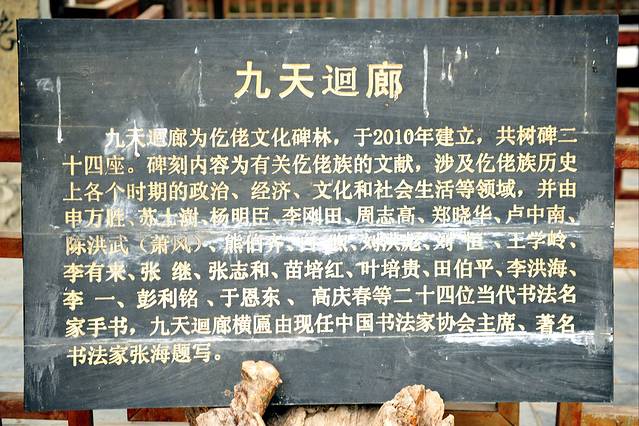 九天迴廊
九天迴廊为仡佬文化碑林，于2010年建立，共树碑二
十四座。碑刻内容为有关仡佬族的文献，涉及仡佬族历史
上各个时期的政治、经济、文化和社会生活等领域，并由
申万胜、苏士澍、杨明臣、李刚田、周志高、郑晓华、卢中南、
陈洪武（萧风）、熊伯齐、刘洪彪、刘恒、王学岭、
李有来、张 继、张志和、苗培红、叶培贵、田伯平、李洪海、
李 一、彭利铭、于恩东、高庆春等二十四位当代书法名
家手书，九天迴廊横匾由现任中国书法家协会主席、著名
书法家张海题写。